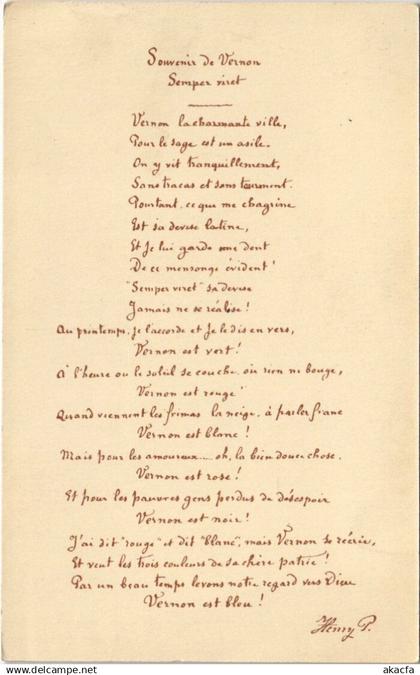 Souvenir de Vernon
Semper viret
Vernon la charmante ville,
Pour le sage est un asile.
On y vit tranquillement,
Sans tracas et sans tourment.
Pourtant, ce que me chagrine
Est sa devise latine,
Et je lui garde une dent
De ce mensonge évident!
"Semper viret" sa devise
Jamais ne se réalise!
Au printemps, je l'accorde et je le dis en vers,
Vernon est vert!
À l'heure ou le soleil se couche, où rien ne bouge,
Vernon est rouge
Quand viennent les frimas la neige, à parler franc
Vernon est blanc!
Mais pour les amoureux... oh, la bien douce chose.
Vernon est rose!
Et pour les pauvres gens perdus de désespoir
Vernon est noir!
J'ai dit "rouge" et dit "blanc", mais Vernon se récrie,
Et veut les trois couleurs de sa chère patrie!
Par un beau temps levons notre regard vers Dieu
Vernon est bleu!
Henry P.
www.delcampe.net
akacfa